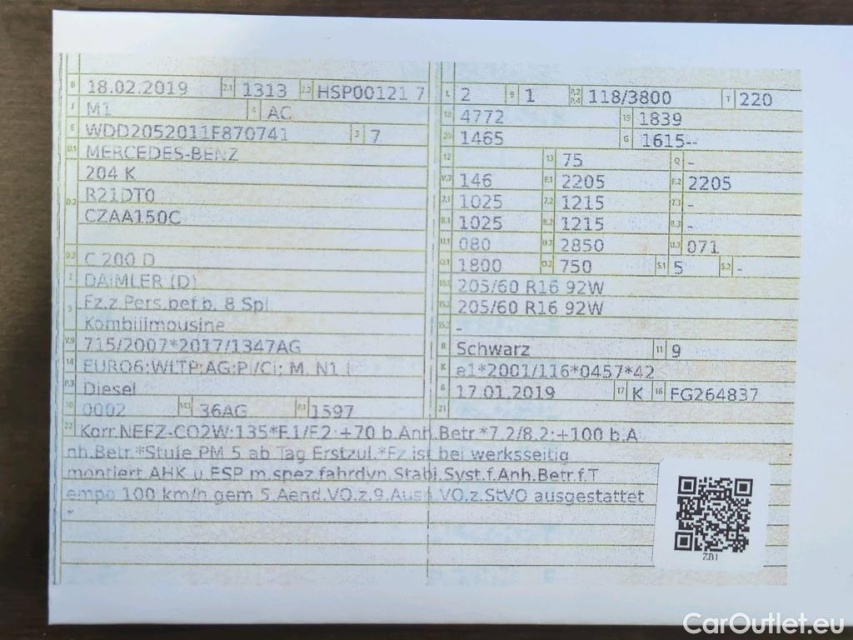 B 18.02.2019 2.1 1313 2.2 HSP00121 7
J M1 4 AC
E WDD2052011F870741 3 7
D.1 MERCEDES-BENZ
D.2 204 K
R21DT0
CZAA150C
D.3 C 200 D
2 DAIMLER (D)
5 Fz.z.Pers.bef.b. 8 Spl.
Kombilimousine
V.9 715/2007*2017/1347AG
14 EURO6;WLTP;AG;P/CI; M, N1 I
P.3 Diesel
10 0002 14.1 36AG P.1 1597
L 2 9 1 P.2 P.4 118/3800 T 220
18 4772 19 1839
20 1465 G 1615--
12 13 75 Q -
V.7 146 F.1 2205 F.2 2205
7.1 1025 7.2 1215 7.3 -
8.1 1025 8.2 1215 8.3 -
U.1 080 U.2 2850 U.3 071
O.1 1800 O.2 750 S.1 5 S.2 -
15.1 205/60 R16 92W
15.2 205/60 R16 92W
15.3 -
R Schwarz 11 9
K e1*2001/116*0457*42
6 17.01.2019 17 K 16 FG264837
21
22 Korr.NEFZ-CO2W:135*F.1/F.2:+70 b.Anh.Betr.*7.2/8.2:+100 b.A
nh.Betr.*Stufe PM 5 ab Tag Erstzul.*Fz ist bei werksseitig
montiert AHK u ESP m.spez.fahrdyn.Stabi.Syst.f.Anh.Betr.f.T
empo 100 km/h gem 5.Aend.VO.z.9.Ausn.VO.z.StVO ausgestattet
-
ZB1
CarOutlet.eu